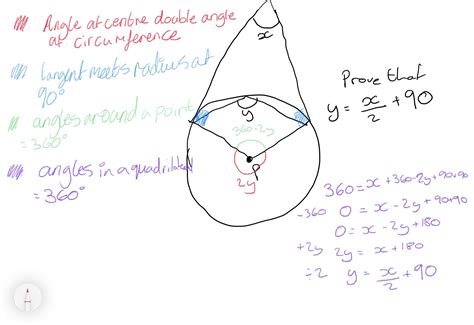 Angle at centre double angle
at circumference
tangent meets radius at
90°
angles around a point
=360°
angles in a quadrilateral
=360°
x
y
360-2y
P
2y
Prove that
y = x/2 + 90
360 = x + 360 - 2y + 90 + 90
-360 0 = x - 2y + 90 + 90
0 = x - 2y + 180
+2y 2y = x + 180
÷2 y = x/2 + 90